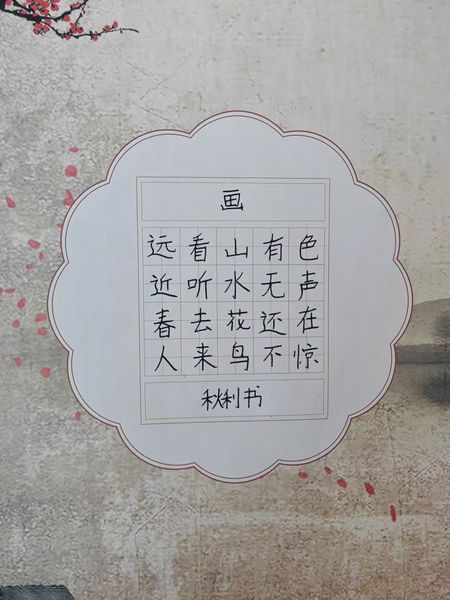 画
远看山有色
近听水无声
春去花还在
人来鸟不惊
秋利书